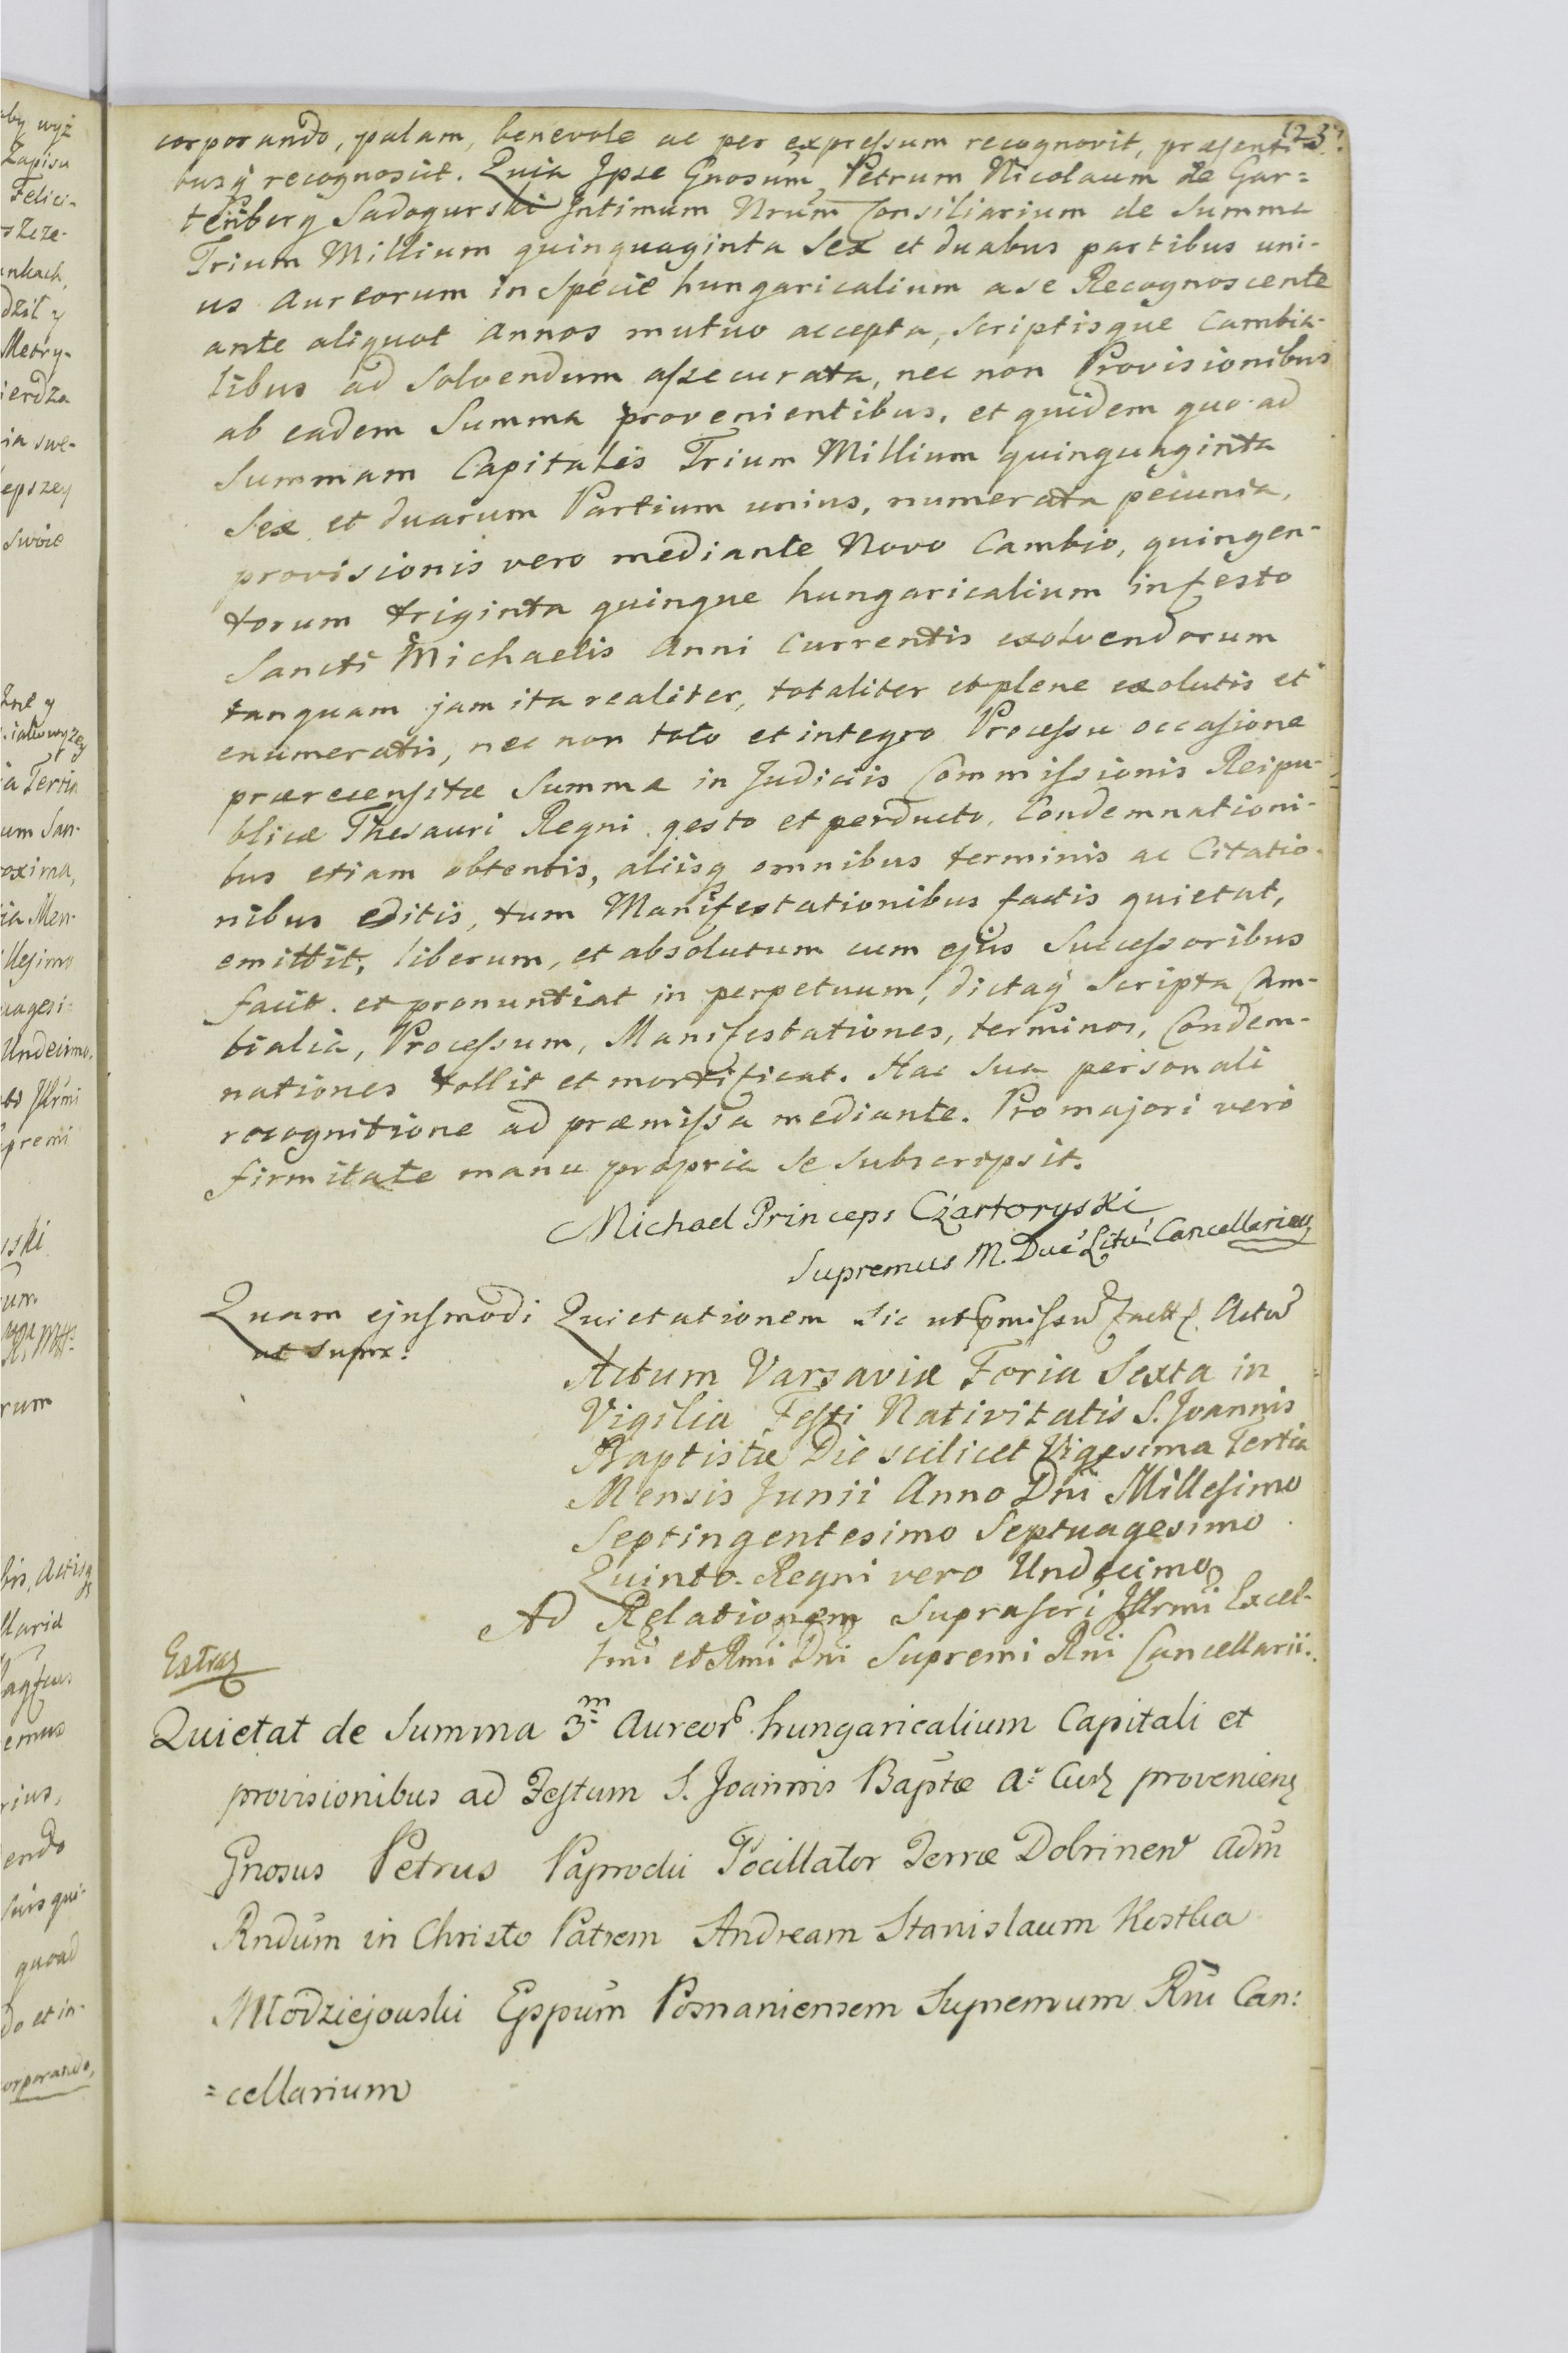 123.
corporando, palam, benevole ac per expressum recognovit, præsenti-
busq̃ recognoscit. Quia Ipse Gnosum Petrum Nicolaum de Gar=
tenberg Sadogurski Intimum Nrum Consiliarium de Summa
Trium Millium quinquaginta Sex et duabus partibus uni-
us Aureorum in Specie hungaricalium a se Recognoscente
ante aliquot annos mutuo accepta, scriptisque Cambia-
libus ad solvendum assecurata, nec non Provisionibus
ab eadem Summa provenientibus, et quidem quo ad
Summam Capitalis Trium Millium quinquaginta
Sex et duarum Partium unius, numerata pecunia,
provisionis vero mediante Novo Cambio, quingen-
torum triginta quinque hungaricalium in festo
Sancti Michaelis Anni Currentis exolvendorum
tanquam jam ita realiter, totaliter et plene exolutis et
enumeratis, nec non toto et integro Processu occasione
præcensitæ Summæ in Judiciis Commissionis Reipu-
blicæ Thesauri Regni gesto et perducto, Condemnationi-
bus etiam obtentis, aliisq̃ omnibus terminis ac Citatio-
nibus editis, tum Manifestationibus factis quietat,
emittit, liberum, et absolutum cum ejus Successoribus
facit et pronuntiat in perpetuum, dictaq̃ Scripta Cam-
bialia, Processum, Manifestationes, terminos, Condem-
nationes tollit et mortificat. Hac sua personali
recognitione ad præmissa mediante. Pro majori vero
firmitate manu propria se subscripsit.
Michael Princeps Czartoryski
Supremus M. Duc. Litu. Cancellarius
Quam ejusmodi Quietationem sic ut pmissu fact Actu
ut supra:
Actum Varsaviæ Feria Sexta in
Vigilia Festi Nativitatis S. Joannis
Baptistæ Die scilicet Vigesima Tertia
Mensis Junii Anno Dni Millesimo
Septingentesimo Septuagesimo
Quinto. Regni vero Undecimo
Ad Relationem Suprascri Illrmi Excel-
tmi et Rmi Dni Supremi Rni Cancellarii.
Extrac
Quietat de Summa 3m Aureor. hungaricalium Capitali et
provisionibus ad Festum S. Joannis Baptæ A. Cur provenien
Gnosus Petrus Paprocki Pocillator Terræ Dobrinen adm
Rndum in Christo Patrem Andream Stanislaum Kostka
Młodziejowski Eppum Posnaniensem Supremum Rni Can:
=cellarium